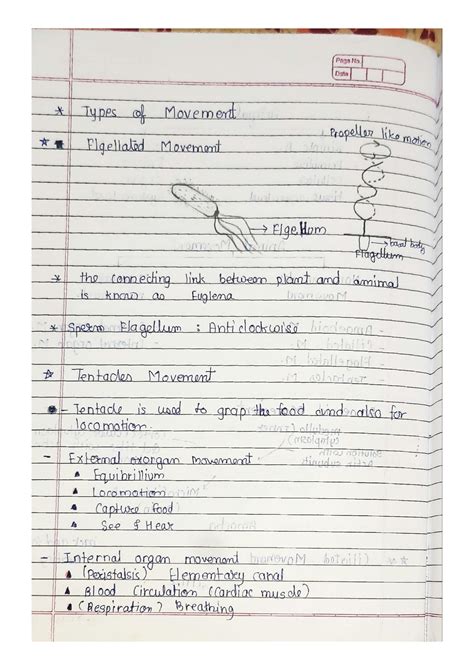 Page No.
Date
* Types of Movement
Propeller like motion
* Flgellated Movement
→ Flgellum
→ basal body
Flagellum
* the connecting link between plant and amimal
is know as Euglena
* Sperm Flagellum : Anticlockwise
* Tentacles Movement
- Tentacle is used to grap the food and also for
locomotion.
- External organ movement
Equibrillium
Locomotion
Capture food
See & Hear
- Internal organ movement
(Peristalsis) Elementary canal
Blood Circulation (cardiac muscle)
(Respiration) Breathing